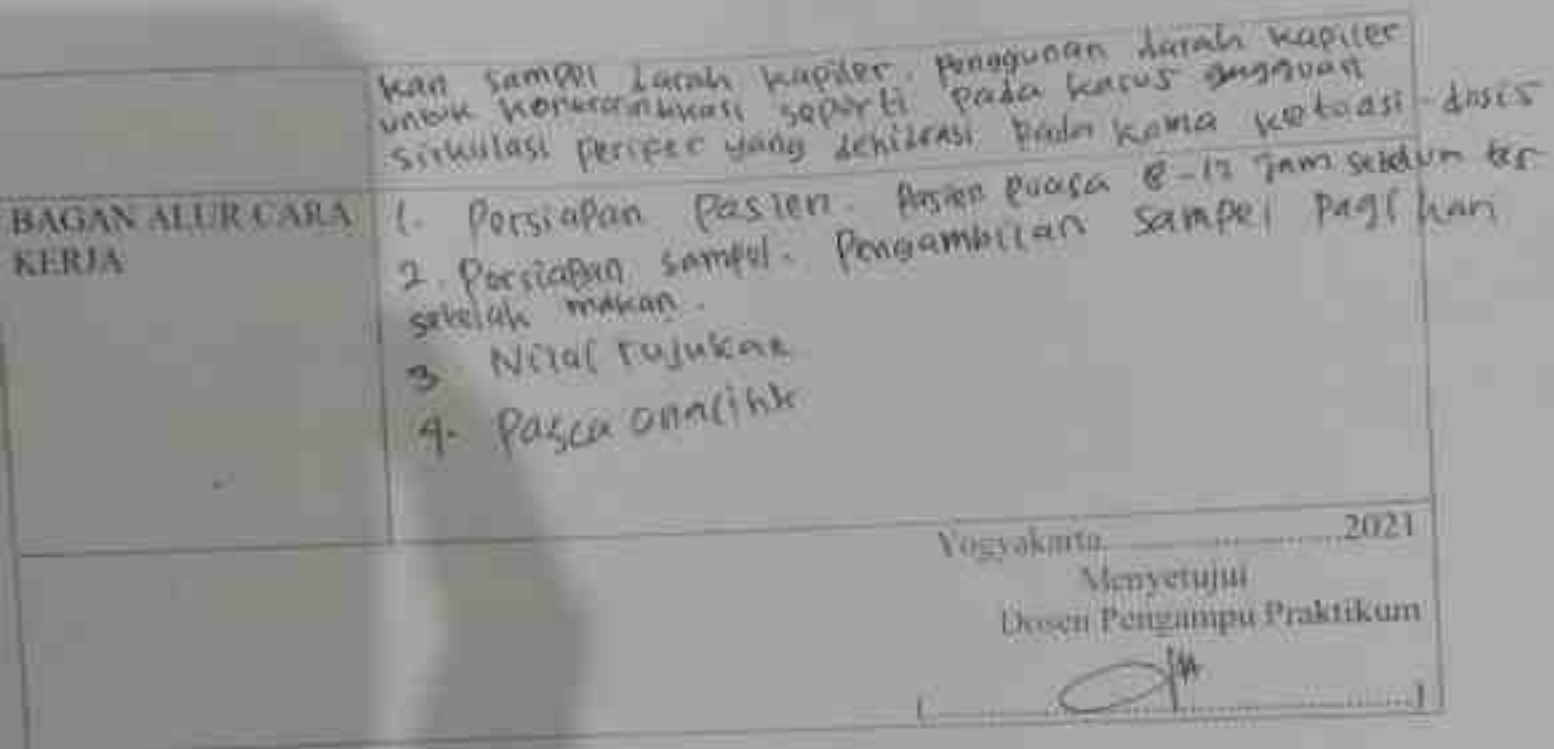 kan sampel darah kapiler. Penggunan darah kapiler
untuk seperti pada kasus gangguan
sirkulasi perifer yang dehidrasi pada koma ketoasi-dosis
BAGAN ALUR CARA
KERJA
1. Persiapan pasien. Pasien puasa 8-12 jam sebelum tes
2. Persiapan sampel. Pengambilan sampel pagi hari
setelah makan.
3. Nilai rujukan
4. Pasca analitik
Yogyakarta,..............................2021
Menyetujui
Dosen Pengampu Praktikum
(..............................................)